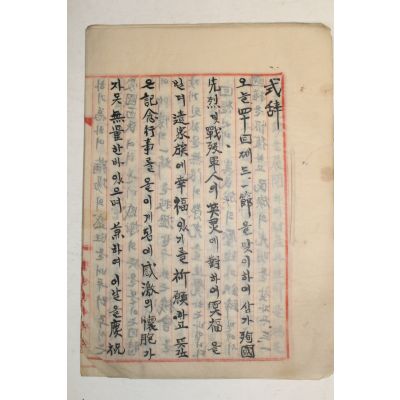 式辭
오늘 四十回 제 三一節을 맞이하여 삼가 殉國
先烈 및 戰歿軍人의 英灵에 對하여 冥福을
빌며 遺家族에 幸福있기를 祈願하고
은 記念行事를 올이게 됨에 感激의 懷胞가
자못 無量한바 있으며 兼하여 이날을 慶祝